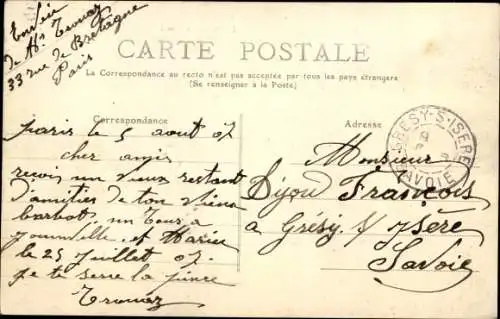 Envoie
de Mr Tronaz
33 rue de Bretagne
Paris
CARTE POSTALE
La Correspondance au recto n'est pas acceptée par tous les pays étrangers
(Se renseigner à la Poste)
Correspondance
Adresse
Paris le 5 aout 07
cher amis
reçois un vieux restant
d'amitier de ton vieux
barbot
et Marié
le 25 Juillet 07
je te serre la pince
Tronaz
Monsieur
Dijou François
a Grésy s/ Isère
Savoie
GRESY-S-ISERE
SAVOIE